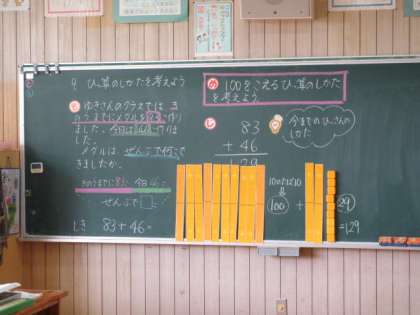 9 ひっ算のしかたを考えよう
も ゆきさんのクラスでは き
のうまでにメダルを83こ作り
ました。今日は46こ作りま
した。
メダルは、ぜんぶで何こで
きましたか。
きのうまでに83こ 今日46こ
ぜんぶで□こ
しき 83+46=
め 100をこえるひっ算のしかた
を考えよう
83
+ 46
129
今までのひっ算の
しかた
10が10こ
100
+
29
=129